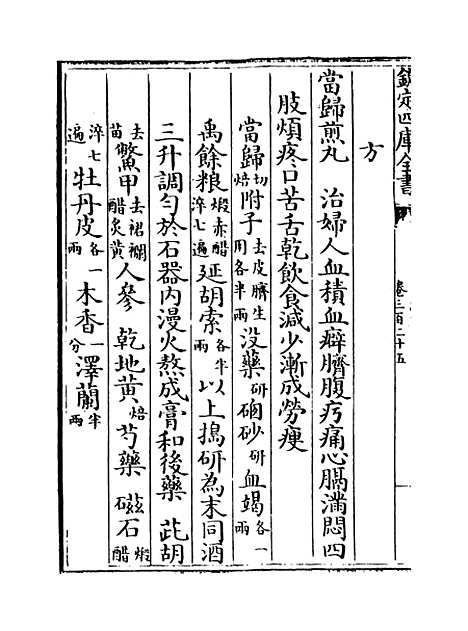 欽定四庫全書 卷三百二十五
方
當歸煎丸 治婦人血積血癖臍腹疞痛心膈滿悶四
肢煩疼口苦舌乾飲食減少漸成勞瘦
當歸切焙附子去皮臍生用各半兩没藥研硇砂研血竭各一兩
禹餘粮煅赤醋淬七遍延胡索各半兩以上搗研為末同酒
三升調勻於石器内漫火熬成膏和後藥 茈胡
去苗鱉甲去裙襴醋炙黄人參 乾地黄焙芍藥 磁石煅醋
淬七遍牡丹皮各一兩木香一分澤蘭半兩